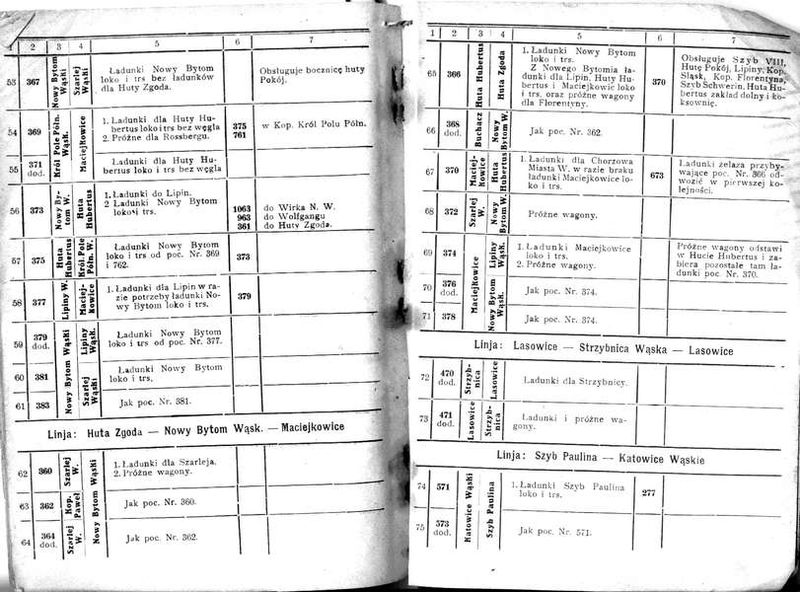 1 2 3 4 5 6 7
53 367 Nowy Bytom Wąski Szarlej Wąski Ładunki Nowy Bytom Obsługuje bocznicę huty
loko i trs bez ładunków Pokój.
dla Huty Zgoda.
54 369 Król Pole Półn. Wąsk. Maciejkowice 1. Ładunki dla Huty Hu- w Kop. Król Polu Półn.
bertus loko i trs bez węgla 375
2. Próżne dla Rossbergu. 761
55 371 dod. Ładunki dla Huty Hu-
bertus loko i trs bez węgla
56 373 Nowy By-tom W. Huta Hubertus 1. Ładunki do Lipin.
2 Ładunki Nowy Bytom
loko i trs. 1063 do Wirka N. W.
963 do Wolfgangu
361 do Huty Zgoda.
57 375 Huta Hubertus Król Pole Półn. W. Ładunki Nowy Bytom
loko i trs od poc. Nr. 369 373
i 762.
58 377 Lipiny W. Maciej-kowice 1. Ładunki dla Lipin w ra- 379
zie potrzeby ładunki No-
wy Bytom loko i trs.
59 379 dod. Nowy Bytom Wąski Lipiny Wąsk. Ładunki Nowy Bytom
loko i trs od poc. Nr. 377.
60 381 Szarlej Wąski Ładunki Nowy Bytom
loko i trs,
61 383 Jak poc. Nr. 381.
Linja: Huta Zgoda — Nowy Bytom Wąsk. — Maciejkowice
62 360 Szarlej W. Nowy Bytom Wąski 1. Ładunki dla Szarleja.
2. Próżne wagony.
63 362 Kop. Paweł Jak poc. Nr. 360.
64 364 dod. Szarlej W. Jak poc. Nr. 362.
1 2 3 4 5 6 7
65 366 Huta Hubertus Huta Zgoda 1. Ładunki Nowy Bytom 370 Obsługuje Szyb VIII,
loko i trs. Hutę Pokój, Lipiny, Kop.
Z Nowego Bytomia ła- Śląsk, Kop. Florentyna,
dunki dla Lipin, Huty Hu- Szyb Schwerin, Huta Hu-
bertus i Maciejkowic loko bertus zakład dolny i ko-
i trs. oraz próżne wagony ksownię.
dla Florentyny.
66 368 dod. Buchacz Nowy Bytom W. Jak poc. Nr. 362.
67 370 Maciej-kowice Huta Hubertus 1. Ładunki dla Chorzowa 673 Ładunki żelaza przyby-
Miasta W. w razie braku wające poc. Nr. 366 od-
ładunki Maciejkowice lo- wozić w pierwszej ko-
ko i trs. lejności.
68 372 Szarlej W. Nowy Bytom W. Próżne wagony.
69 374 Maciejkowice Lipiny Wąsk. 1. Ładunki Maciejkowice Próżne wagony odstawi
loko i trs. w Hucie Hubertus i za-
2. Próżne wagony. biera pozostałe tam ła-
dunki poc. Nr. 370.
70 376 dod. Nowy Bytom Wąsk. Jak poc. Nr. 374.
71 378 Jak poc. Nr. 374.
Linja: Lasowice — Strzybnica Wąska — Lasowice
72 470 dod. Strzyb-nica Lasowice Ładunki dla Strzybnicy.
73 471 dod. Lasowice Strzyb-nica Ładunki i próżne wa-
gony.
Linja: Szyb Paulina — Katowice Wąskie
74 571 Katowice Wąski Szyb Paulina 1. Ładunki Szyb Paulina 277
loko i trs.
75 573 dod. Jak poc. Nr. 571.